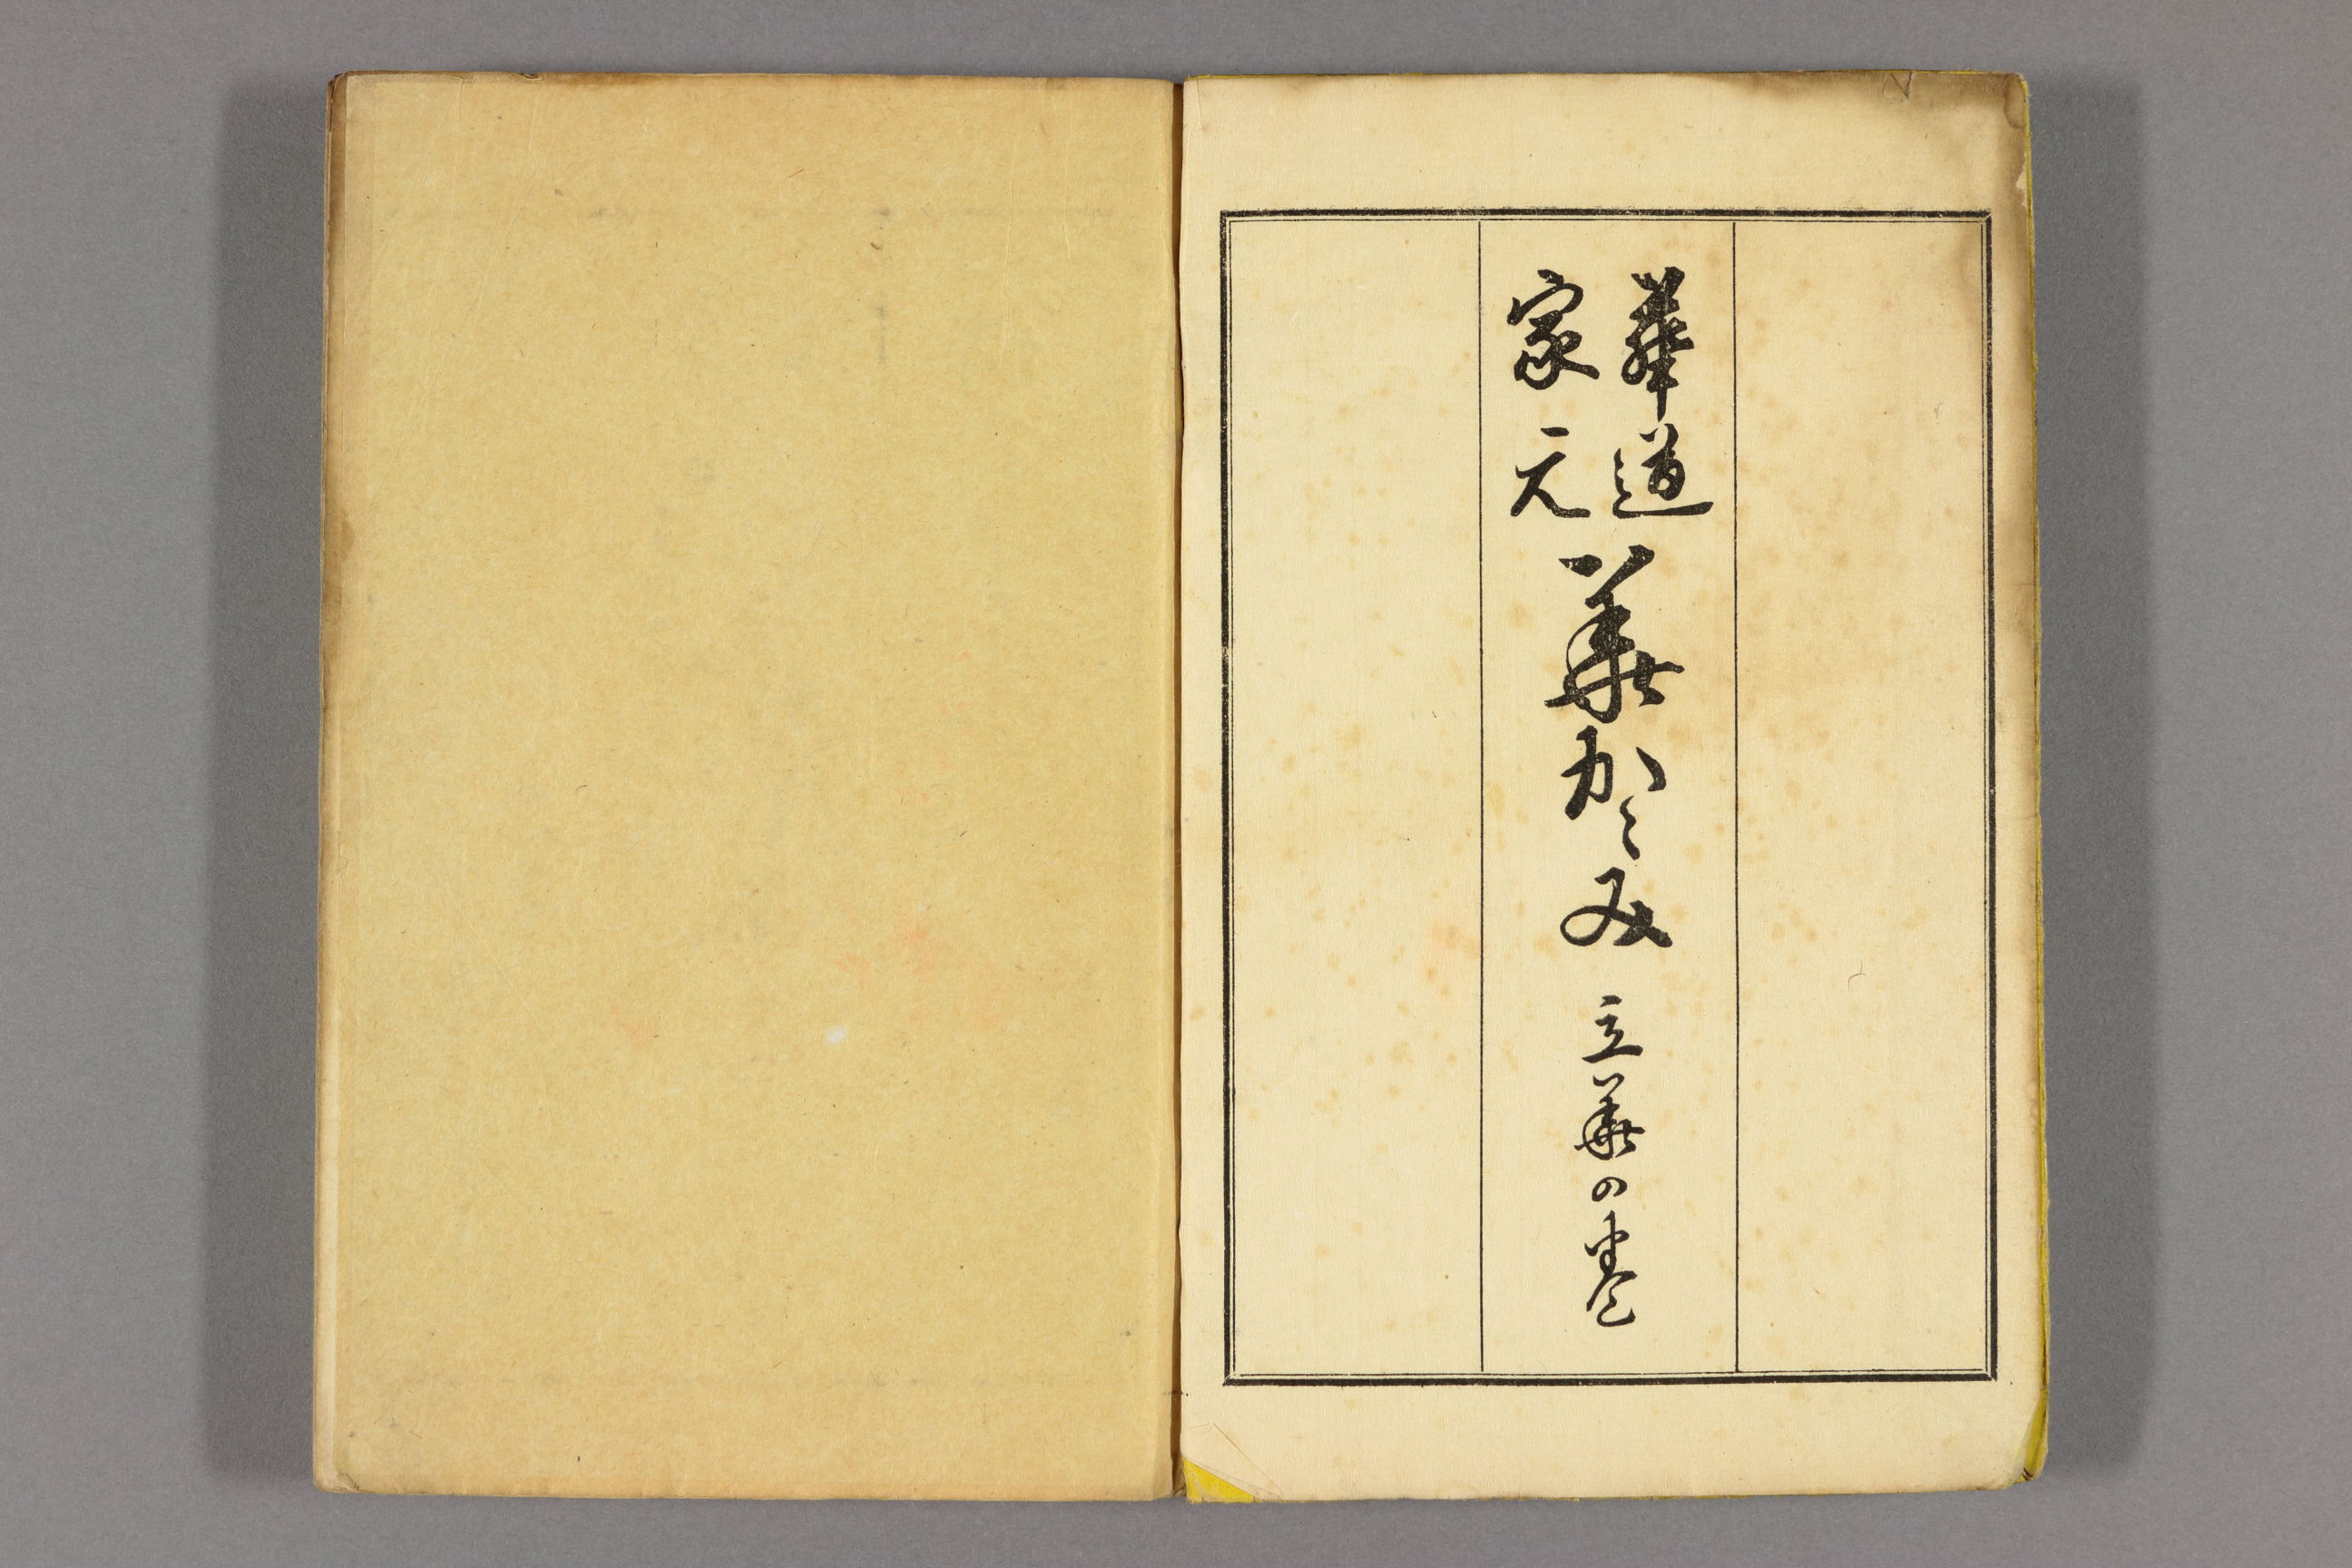 華道
家元
華かゞみ
立華の巻